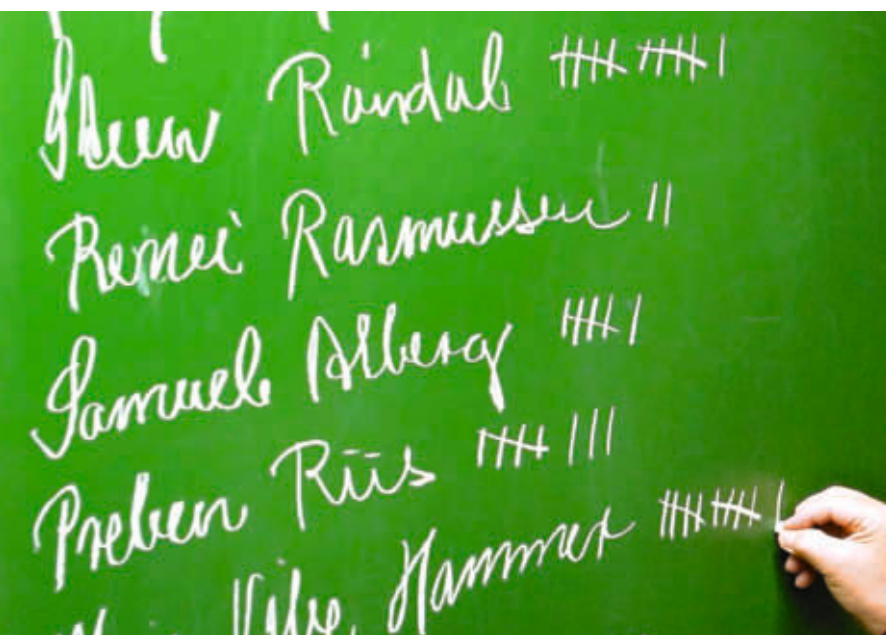 Steen Råndal
Remei Rasmussen
Samuel Alberg
Preben Riis
Hammer